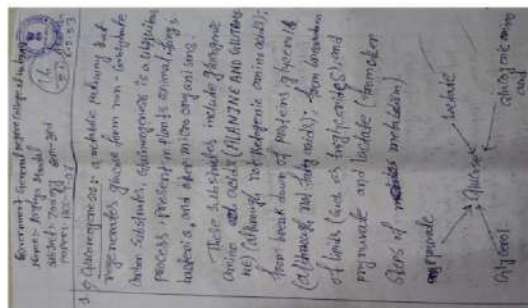 Government General Degree College at
Name:-
Subject:- Zoology Sem-3rd
Paper:-
Gluconeogenesis: a metabolic pathway that
generates glucose form non-carbohydrate
carbon substrates, Gluconeogenesis is a ubiquitous
process, present in plants animal fungi
bacteria, and other micro organisms.
These substrates include glucogenic
amino acids (ALANINE AND GLUTAMI
NE) (although not ketogenic amino acids);
from break down of proteins, glycerol
(although not fatty acids); from breakdown
of lipids (such as triglycerides), and
pyruvate and lactate (from other
steps of metabolism).
pyruvate lactate
glucose
Glycerol glucogenic amino
acid